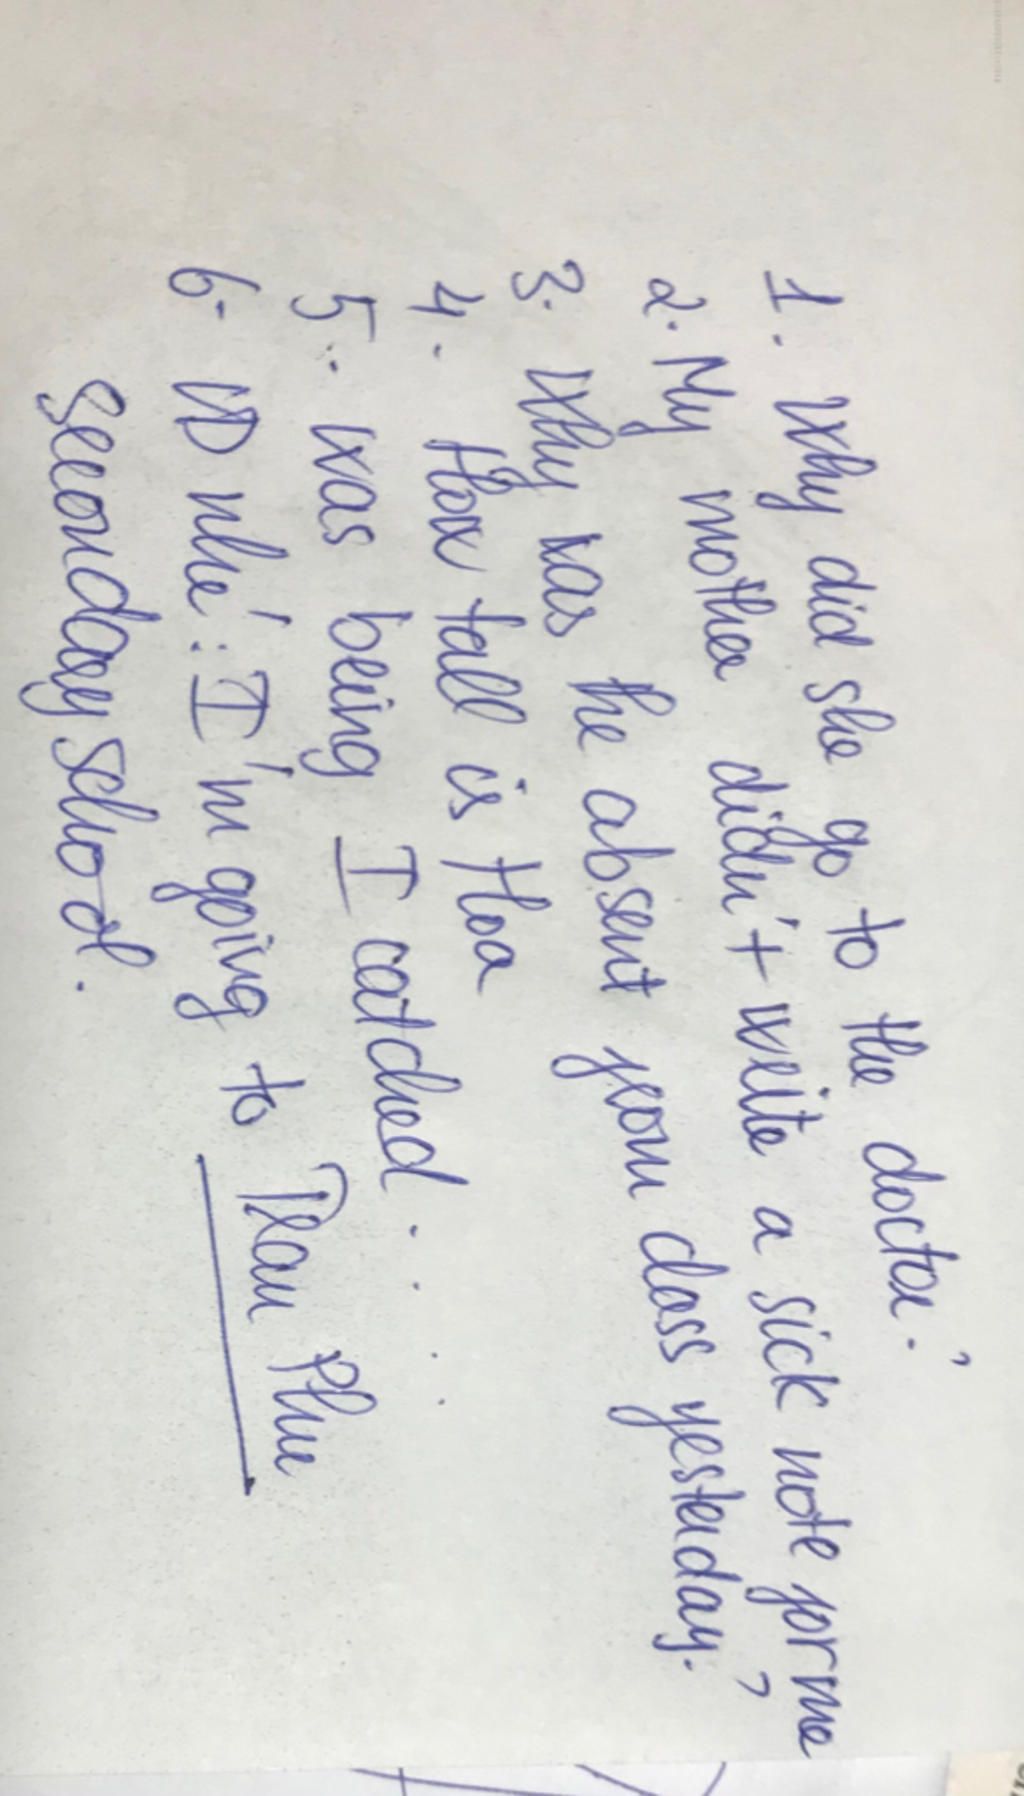 1. Why did she go to the doctor?
2. My mother didn't write a sick note for me
3. Why was the absent from class yesterday?
4. How tall is Hoa
5. Was being I catched...
6. VD nhé: I'm going to Tran Phu
secondary school.